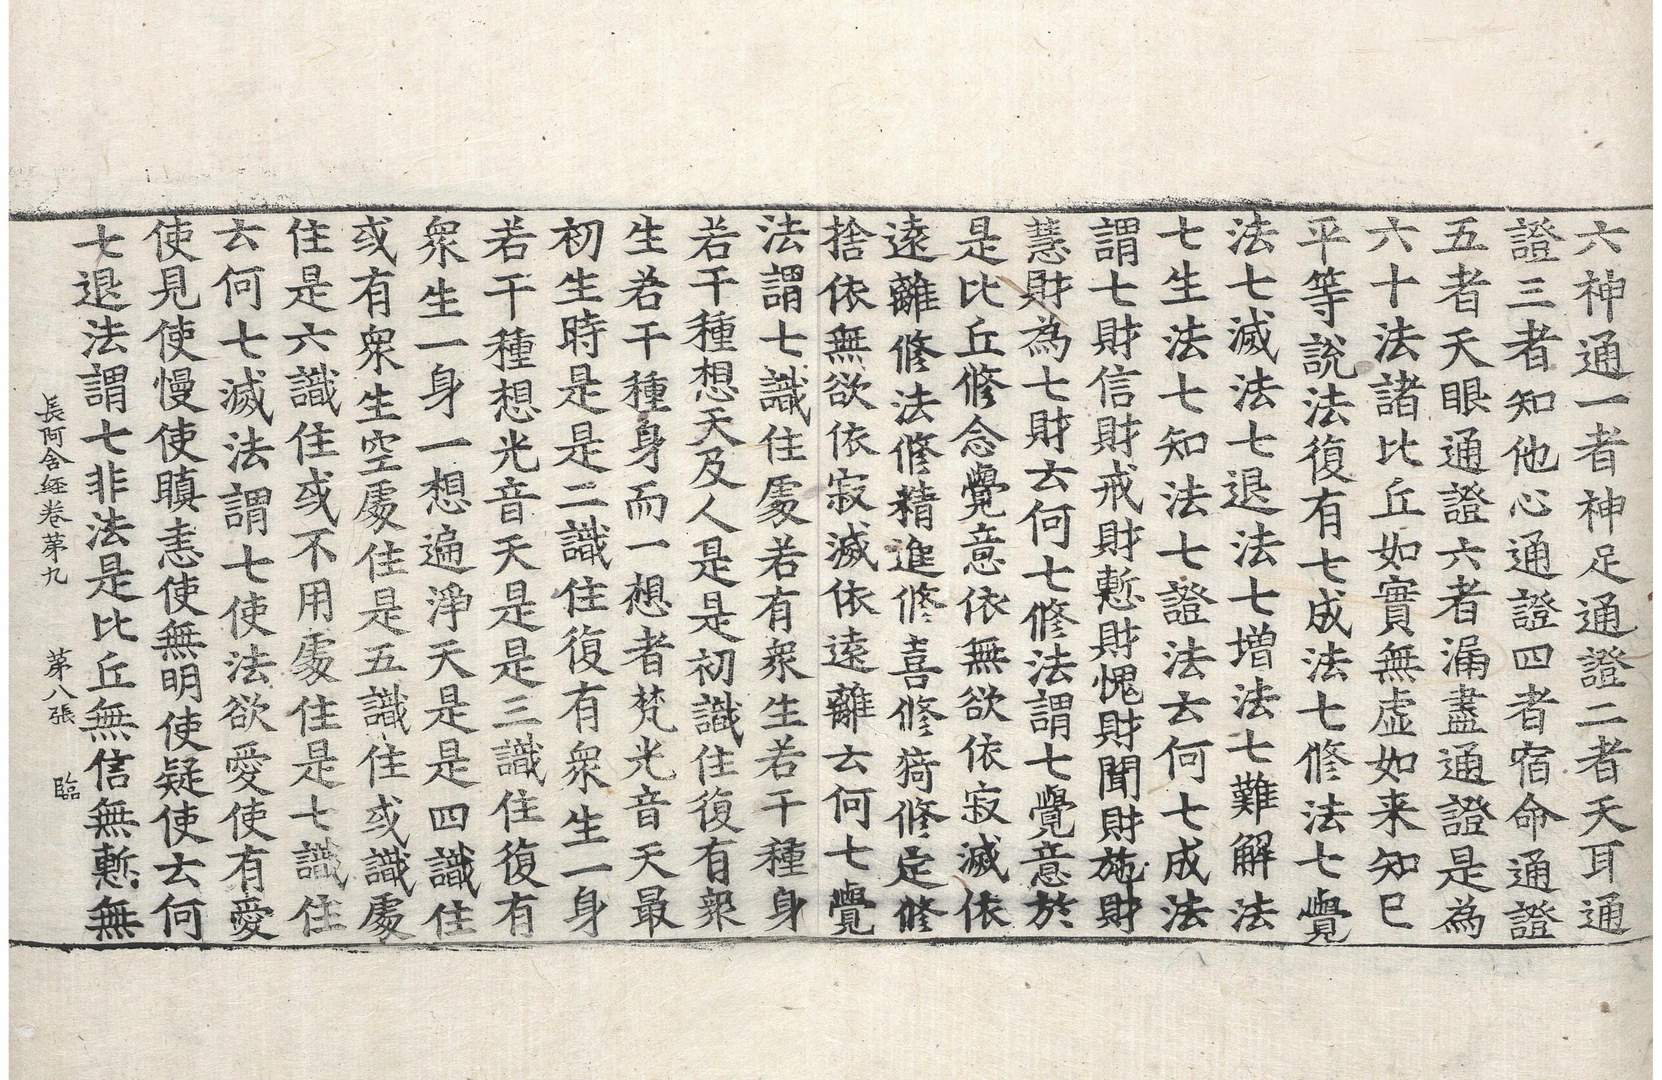 六神通一者神足通證二者天耳通
證三者知他心通證四者宿命通證
五者天眼通證六者漏盡通證是為
六十法諸比丘如實無虛如来知已
平等說法復有七成法七修法七覺
法七滅法七退法七增法七難解法
七生法七知法七證法云何七成法
謂七財信財戒財慙財愧財聞財施財
慧財為七財云何七修法謂七覺意於
是比丘修念覺意依無欲依寂滅依
遠離修法修精進修喜修猗修定修
捨依無欲依寂滅依遠離云何七覺
法謂七識住處若有衆生若干種身
若干種想天及人是是初識住復有衆
生若干種身而一想者梵光音天最
初生時是是二識住復有衆生一身
若干種想光音天是是三識住復有
衆生一身一想遍淨天是是四識住
或有衆生空處住是五識住或識處
住是六識住或不用處住是七識住
云何七滅法謂七使法欲愛使有愛
使見使慢使瞋恚使無明使疑使云何
七退法謂七非法是比丘無信無慙無
長阿含經卷苐九 苐八張 臨